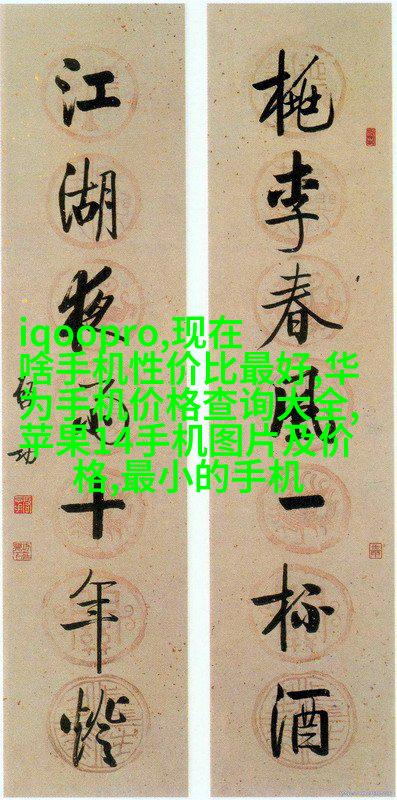 桃李春風一杯酒
江湖夜雨十年燈
啓功
iqoopro,现在
啥手机性价比最好,华
为手机价格查询大全,
苹果14手机图片及价
格,最小的手机